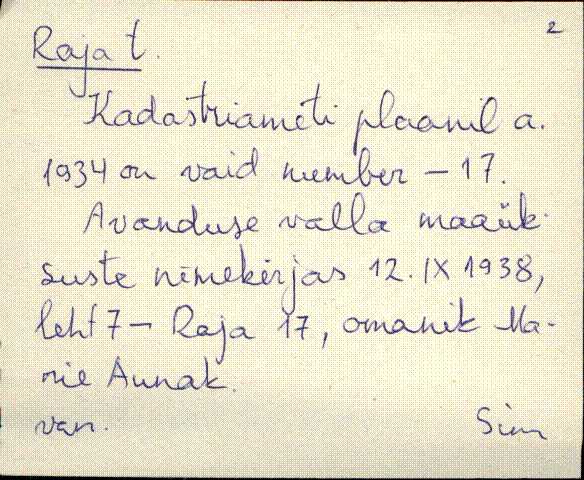 2
Raja t.
Kadastriameti plaanil a.
1934 on vaid number – 17.
Avanduse valla maaük-
suste nimekirjas 12. IX 1938,
leht 7 – Raja 17, omanik Ma-
rie Aunak.
van. Sim